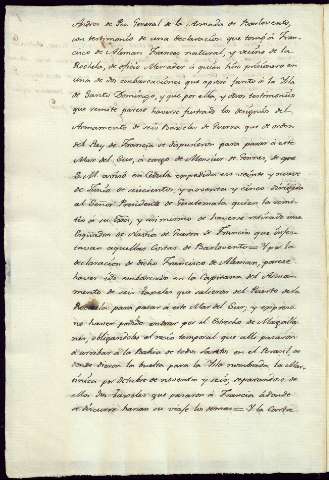 Andres de Pez General de la Armada de Barlovento,
con testimonio de una declaracion que tomó á Fran-
cisco de Aleman Frances natural, y vecino de la
Rochela, de oficio Mercader á quien hizo prisionero en
una de dos embarcaciones que apresó junto á la Ysla
de Santo Domingo, y que por ella, y otros testimonios
que remite parece haverse frustrado los designios del
Armamento de seis Baxeles de Guerra que de orden
del Rey de Francia se dispusieron para pasar á este
Mar del Sur, á cargo de Monsieur de Gennes, de que
S. M. avisó en Cedula expedida en veinte y nueve
de Junio de seiscientos, y noventa y cinco dirigida
al Señor Presidente de Guatemala quien la remi-
tió á su Exa., y asi mismo de haverse retirado una
Esquadra de Navios de Guerra de Francia que infes-
tavan aquellas Costas de Barlovento = Y por la
declaracion de dicho Francisco de Aleman, parece
haver sido embarcado en la Capitana del Arma-
mento de seis Baxeles que salieron del Puerto de la
Rochela para pasar á este Mar del Sur, y expresa
no haver podido entrar por el Estrecho de Magalla-
nes, obligandoles el recio temporal que alli pasaron
á arribar á la Bahia de todos Santos en el Brasil, de
donde dieron la buelta para la Ysla nombrada la Mar-
tinica por Octubre de noventa y seis, separandose de
ellos dos Baxeles que pasaron á Francia á donde
se discurre harian su viaje los demas = Y la Carta